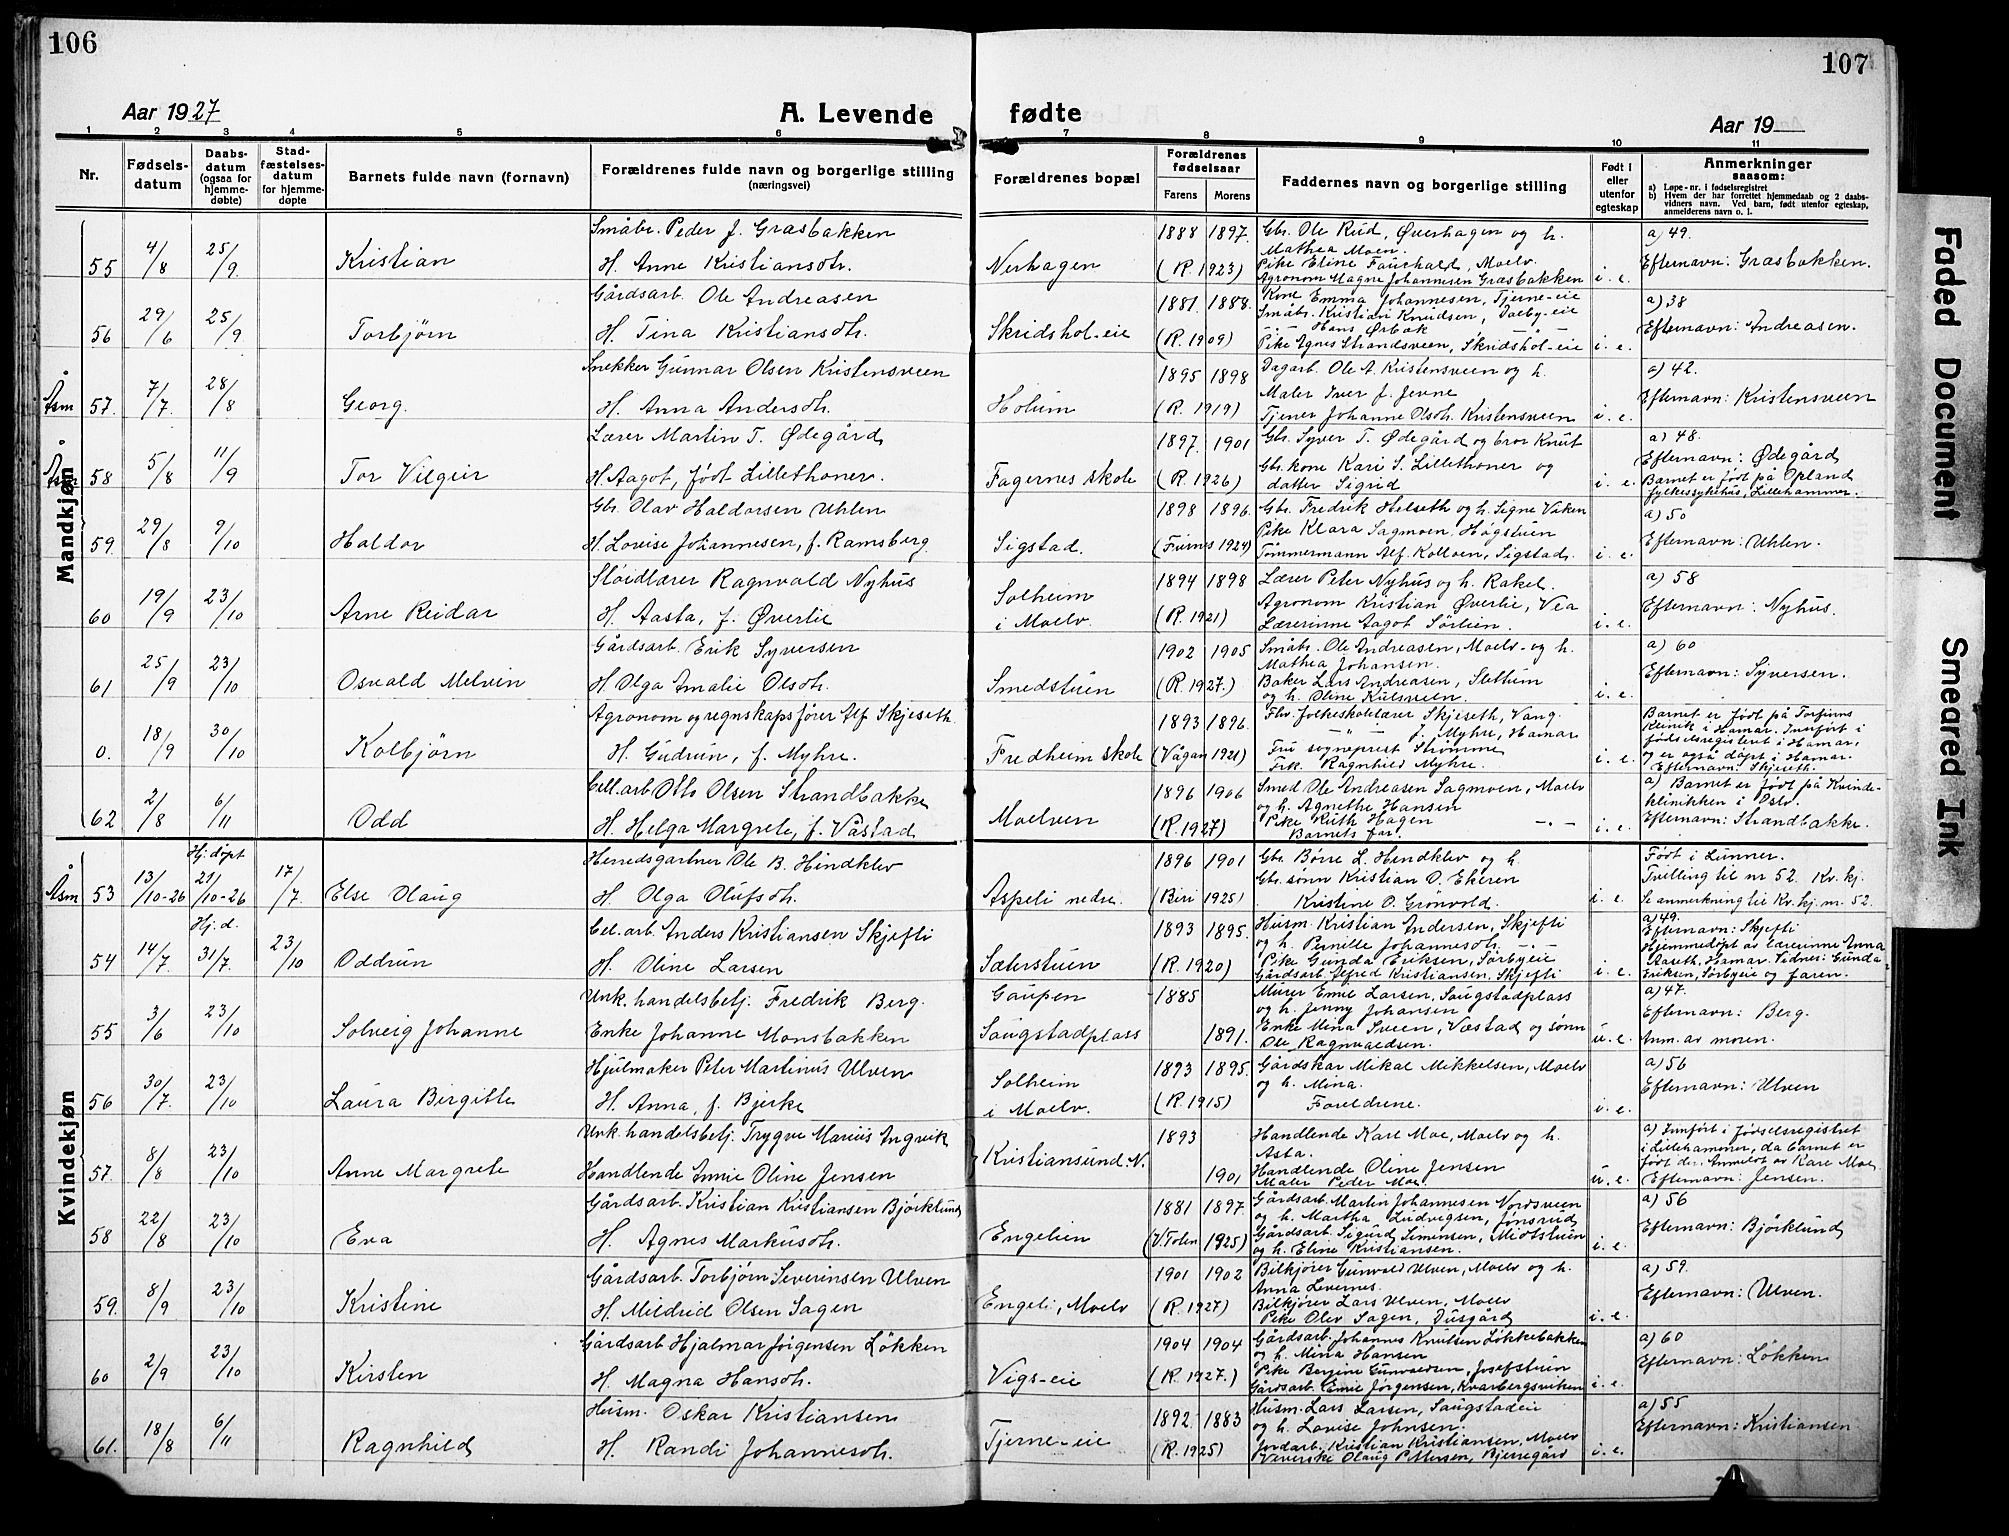 106
107
Aar 1927
A. Levende
fødte
Aar 19
1 2 3 4 5 6 7 8 9 10 11
Nr.
Fødsels-
datum
Daabs-
datum
(ogsaa for
hjemme-
døbte)
Stad-
fæstelses-
datum
for hjemme-
døpte
Barnets fulde navn (fornavn)
Forældrenes fulde navn og borgerlige stilling
(næringsvei)
Forældrenes bopæl
Forældrenes
fødselsaar
Farens Morens
Faddernes navn og borgerlige stilling
Født i
eller
utenfor
egteskap
Anmerkninger
saasom:
a) Løpe-nr. i fødselsregistret
b) Hvem der har forrettet hjemmedaab og 2 daabs-
vidners navn. Ved barn, født utenfor egteskap,
anmelderens navn o. l.
Mandkjøn
55 4/8 25/9 Kristian
Småbr. Peder J. Græsbakken
H. Anne Kristiansdh.
Nerhagen
1888 1897.
(R. 1923)
Gbr. Ole Rud, Øverhagen og h.
Mathea Moen.
Pike Eline Fauchald, Moelv.
Agronom Magne Johannesen Græsbakken
i. e.
a) 49.
Efternavn: Græsbakken.
56 29/6 25/9 Torbjørn
Gårdsarb. Ole Andreasen
H. Tina Kristiansdh.
Skridshol-eie
1881. 1888.
(R. 1909)
Kone Emma Johannesen, Tjerne-eie
Småbr. Kristian Knudsen, Dæhly-eie
-"- Hans Ørbæk
Pike Agnes Strandsveen, Skridshol-eie
i. e.
a) 38
Efternavn: Andreasen.
Åsm 57. 7/7. 28/8 Georg.
Snekker Gunnar Olsen Kristensveen
H. Anna Andersdh.
Holum
1895 1898
(R. 1919)
Dagarb. Ole A. Kristensveen og h.
Maler Iver J. Jevne
Tjener Johanne Olsdh. Kristensveen
i. e.
a) 42.
Efternavn: Kristensveen
Åsm 58 5/8 11/9 Tor Vilgeir
Lærer Martin T. Ødegård
H. Aagot, født Lillethoner.
Fagernes skole
1897. 1901
(R. 1926)
Gbr. Syver T. Ødegård og bror Knut
Gbr. kone Kari S. Lillethoner og
datter Sigrid
i. e.
a) 48.
Efternavn: Ødegård
Barnet er født på Opland
fylkessykehus, Lillehammer.
59. 29/8 9/10 Haldor
Gbr. Olav Haldorsen Uhlen
H. Lovise Johannesen, f. Ramsberg.
Sigstad.
1898 1896.
(Furnes 1924)
Gbr. Fredrik Helseth og h. Signe Viken
Pike Klara Sagmoen, Høgstuen
Tømmermann Alf. Kolloen, Sigstad.
i. e.
a) 50
Efternavn: Uhlen.
60 19/9 23/10 Arne Reidar
Sløidlærer Ragnvald Nyhus
H. Aasta, f. Øverlie
Solheim
i Moelv.
1894 1898
(R. 1921)
Lærer Peter Nyhus og h. Rakel.
Agronom Kristian Øverlie, Vea
Lærerinne Aagot Sørlien.
i. e.
a) 58
Efternavn: Nyhus.
61 25/9 23/10 Osvald Melvin
Gårdsarb. Erik Syversen
H. Olga Amalie Olsdh.
Smedstuen
1902 1905
(R. 1927.)
Småbr. Ole Andreasen, Moelv. og h.
Mathea Johansen.
Baker Lars Andreasen, Slethum
og h. Oline Kulsveen.
i. e.
a) 60
Efternavn: Syversen.
0. 18/9 30/10 Kolbjørn
Agronom og regnskapsfører Alf Skjeseth
H. Gudrun, f. Myhre.
Fredheim skole
1893 1896.
(Vågan 1921)
Fhv. folkeskolelærer Skjeseth, Vang.
-"- J. Myhre, Hamar
Fru sogneprest Strømme
Frk. Ragnhild Myhre.
i. e.
Barnet er født på Torfinns
klinik i Hamar. Innført i
fødselsregistret i Hamar,
og er også døpt i Hamar.
Efternavn: Skjeseth.
62 2/8 6/11 Odd
Cell. arb. Otto Olsen Strandbakke
H. Helga Margrete, f. Våstad
Moelven
1896 1906
(R. 1927)
Smed Ole Andreasen Sagmoen, Moelv
og h. Agnethe Hansen
Pike Ruth Hagen -"-
Barnets far.
i. e.
a) Barnet er født på Kvinde-
klinikken i Oslo.
Efternavn: Strandbakke.
Kvindekjøn
Åsm 53 13/10-26 Hj. døpt 21/10-26 17/7. Else Olaug
Herredsgartner Ole B. Hindklev
H. Olga Olufsdh.
Aspeli nedre.
1896 1901
(Biri 1925)
Gbr. Børre L. Hindklev og h.
Gbr. sønn Kristian O. Ekeren
Kristine O. Grønvold.
i. e.
Født i Lunner.
Tvilling til nr 52. Kv. kj.
Se anmerkning til Kv. kj. nr. 52.
54 14/7. Hj. d. 31/7. 23/10 Oddrun
Cel. arb. Anders Kristiansen Skjefti
H. Oline Larsen
Sæterstuen
1893 1895.
(R. 1920)
Husm. Kristian Andersen, Skjefti
og h. Pernille Johannesdh. -"-
Pike Gunda Eriksen, Sørbyeie
Gårdsarb. Alfred Kristiansen, Skjefti
i. e.
a) 49.
Efternavn: Skjefti
Hjemmedøpt av lærerinne Anna
Aaseth, Hamar. Vidnes: Gunda
Eriksen, Sørbyeie og faren.
55 3/6 23/10 Solveig Johanne
Unk. handelsbetj. Fredrik Berg.
Enke Johanne Monsbakken
Gaupen
Saugstadplass
1885
1891.
Murer Emil Larsen, Saugstadplass
og h. Jenny Johansen
Enke Mina Sveen, Væstad og sønn
Ole Ragnvaldsen.
u. e.
a) 47.
Efternavn: Berg.
Anm. av moren.
56 30/7. 23/10 Laura Birgitte
Hjulmaker Peter Martinus Ulven
H. Anna, f. Bjerke
Solheim
i Moelv.
1893 1895.
(R. 1915)
Gårdskar Mikal Mikkelsen, Moelv
og h. Mina.
Foreldrene.
i. e.
a) 56
Efternavn: Ulven
57. 8/8 23/10 Anne Margrete
Unk. handelsbetj. Trygve Marius Ingvik
Handlende Annie Oline Jensen
Kristiansund. N.
1893
1901
Handlende Kare Moe, Moelv og h.
Asta.
Handlende Oline Jensen
Maler Peder Moe.
u. e.
a) Innført i fødselsregistret
i Lillehammer, da barnet er
født der. Anmeldt av Kare Moe
Efternavn: Jensen.
58 22/8 23/10 Eva
Gårdsarb. Kristian Kristiansen Bjørklund
H. Agnes Markusdh.
Engelien
1881 1897.
(V. Toten 1925)
Gårdsarb. Martin Johannesen Nordsveen
og h. Martha Ludvigsen, Jønsrud
Gårdsarb. Sigurd Simensen, Midtstuen
og h. Eline Kristiansen.
i. e.
a) 56
Efternavn: Bjørklund
59. 8/9 23/10 Kristine
Gårdsarb. Torbjørn Severinsen Ulven
H. Mildrid Olsen Sagen
Engeli, Moelv
1901 1902
(R. 1927)
Bilkjører Gunvald Ulven, Moelv og h.
Anna Levernes.
Bilkjører Lars Ulven, Moelv
Pike Olev Sagen, Dusgård
i. e.
a) 59.
Efternavn: Ulven.
60 2/9 23/10 Kirsten
Gårdsarb. Hjalmar Jørgensen Løkken
H. Magna Hansdh.
Vigs-eie
1904 1904
(R. 1927.)
Gårdsarb. Johannes Knutsen Løkkebakken
og h. Mina Hansen
Pike Bergine Gunvaldsen, Josefstuen
Gårdsarb. Emil Jørgensen, Kvarbergsviken
i. e.
a) 60
Efternavn: Løkken
61. 18/8 6/11 Ragnhild
Husm. Oskar Kristiansen
H. Randi Johannesdh.
Tjerne-eie
1892 1883
(R. 1925)
Husm. Lars Larsen, Saugstadeie
og h. Lovise Johnsen.
Jordarb. Kristian Kristiansen, Moelv
Veverske Olaug Pettersen, Bjerregård
i. e.
a) 55
Efternavn: Kristiansen
Faded Document
Smeared Ink